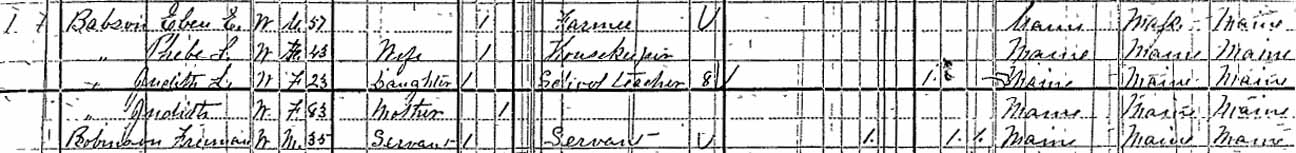 1 7 Babson Eben E. W M 57 1 Farmer V Maine Mass Maine
" Phebe L. W F 43 Wife 1 Housekeeper Maine Maine Maine
" Judith L. W F 23 Daughter 1 School teacher 8 / 1 Maine Maine Maine
" Judith W F 83 Mother 1 Maine Maine Maine
Robinson Freeman W M 35 Servant 1 Servant V 1 1 1 Maine Maine Maine